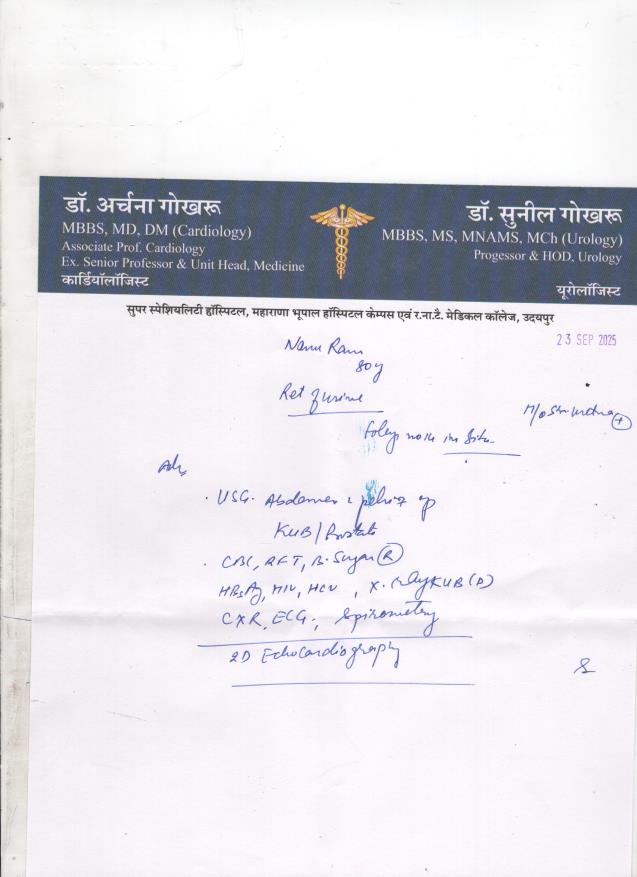 डॉ. अर्चना गोखरू
MBBS, MD, DM (Cardiology)
Associate Prof. Cardiology
Ex. Senior Professor & Unit Head, Medicine
कार्डियॉलॉजिस्ट
डॉ. सुनील गोखरू
MBBS, MS, MNAMS, MCh (Urology)
Progessor & HOD. Urology
यूरोलॉजिस्ट
सुपर स्पेशियलिटी हॉस्पिटल, महाराणा भूपाल हॉस्पिटल केम्पस एवं र.ना.टै. मेडिकल कॉलेज, उदयपुर
23 SEP 2025
Nanu Ram
80y
Ret of urine
Foley no 14 in situ
Adv
USG. Abdomen & pelvis
KUB/Prostate
CBC, RFT, B. Sugar (R)
HBsAg, HIV, HCV, X-Ray KUB (P)
CXR, ECG, Spirometry
2D Echocardiography